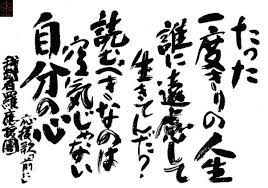 たった
一度きりの人生
誰に遠慮して
生きてんだ?
読むべきなのは
空気じゃない
自分の心
我武者羅應援團
「応援歌、前に」